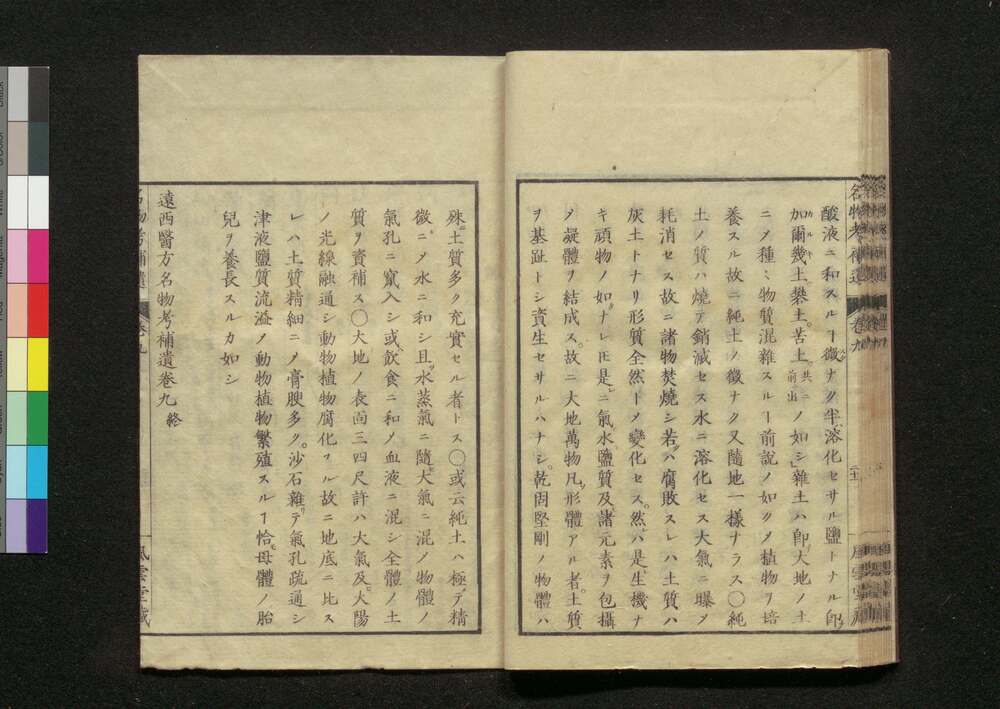 酸液ニ和スルヿ微ナク半溶化セサル鹽トナル卽
加爾幾土攀土苦土共ニ前ニ出ノ如シ雜土ハ卽大地ノ土
ニノ種々物質混雜スルヿ前說ノ如クメ植物ヲ培
養スル故ニ純土ノ徵ナク又隨地一樣ナラス〇純
土ノ質ハ燒テ銷滅セス水ニ溶化セス大氣ニ曝ソ
耗消セス故ニ諸物焚燒シ若ハ腐敗スレハ土質ハ
灰土トナリ形質全然トメ變化セス然ハ是生機ナ
キ頑物ノ如ナレ𪜈是ニ氣水鹽質及諸元素ヲ包攝
メ凝體ヲ結成ス故ニ大地萬物凡形體アル者土質
ヲ基趾トシ資生セサルハナシ乾固堅剛ノ物體ハ
殊土質多ク充實セル者トス〇或云純土ハ極テ精
微ニメ水ニ和シ且水蒸氣ニ隨大氣ニ混ノ物體ノ
氣孔ニ竄入シ或飮食ニ和ノ血液ニ混シ全體ノ土
質ヲ資補ス〇大地ノ表面三四尺許ハ大氣及大陽
ノ光線融通シ動物植物腐化スル故ニ地底ニ比ス
レハ土質精細ニノ膏腴多ク沙石雜テ氣孔疏通シ
津液鹽質流溢ノ動物植物繁殖スルヿ恰母體ノ胎
兒ヲ養長スルカ如シ
遠西醫方名物考補遺卷九 終